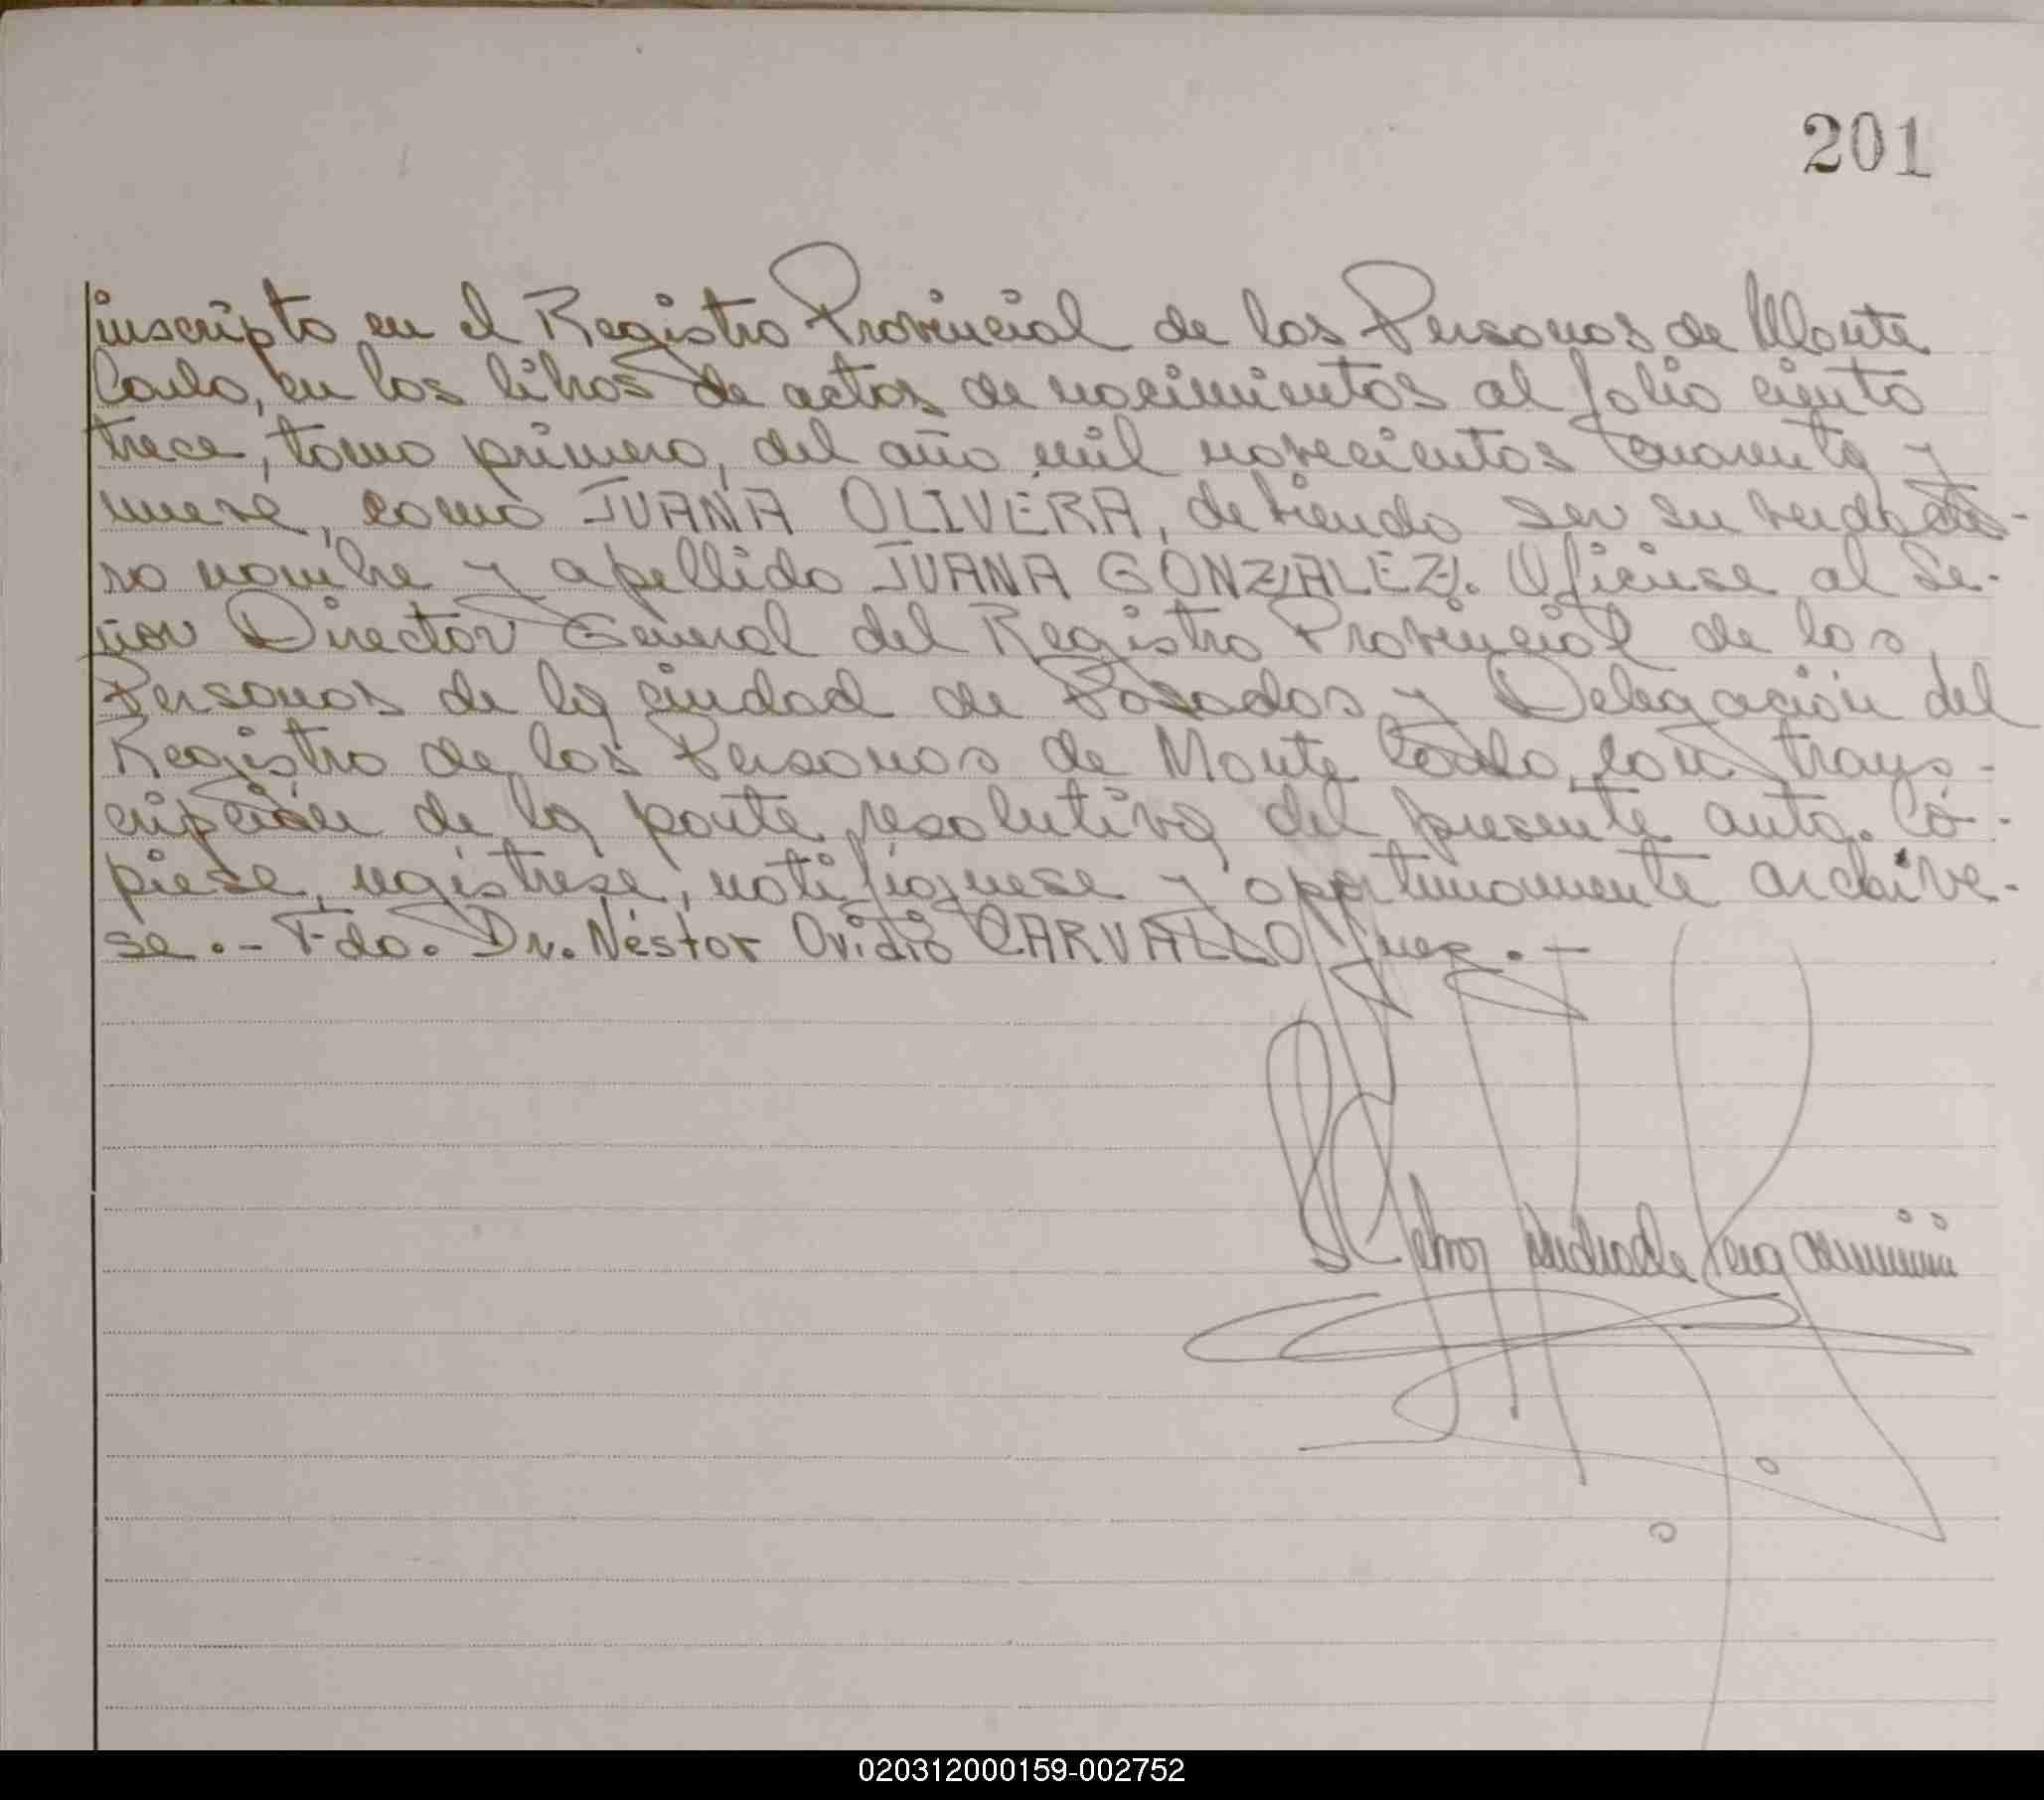 201
inscripto en el Registro Provincial de las Personas de Monte
Carlo, en los libros de actas de nacimientos al folio ciento
trece, tomo primero, del año mil novecientos cuarenta y
nueve, como JUANA OLIVERA, debiendo ser su verdade-
ro nombre y apellido JUANA GONZALEZ. Ofíciese al Se-
ñor Director General del Registro Provincial de las
Personas de la ciudad de Posadas y Delegación del
Registro de las Personas de Monte Carlo, con trans-
cripción de la parte resolutiva del presente auto. Có-
piese, regístrese, notifíquese y oportunamente archíve-
se.- Fdo. Dr. Néstor Ovidio CARVALLO Juez.-
020312000159-002752